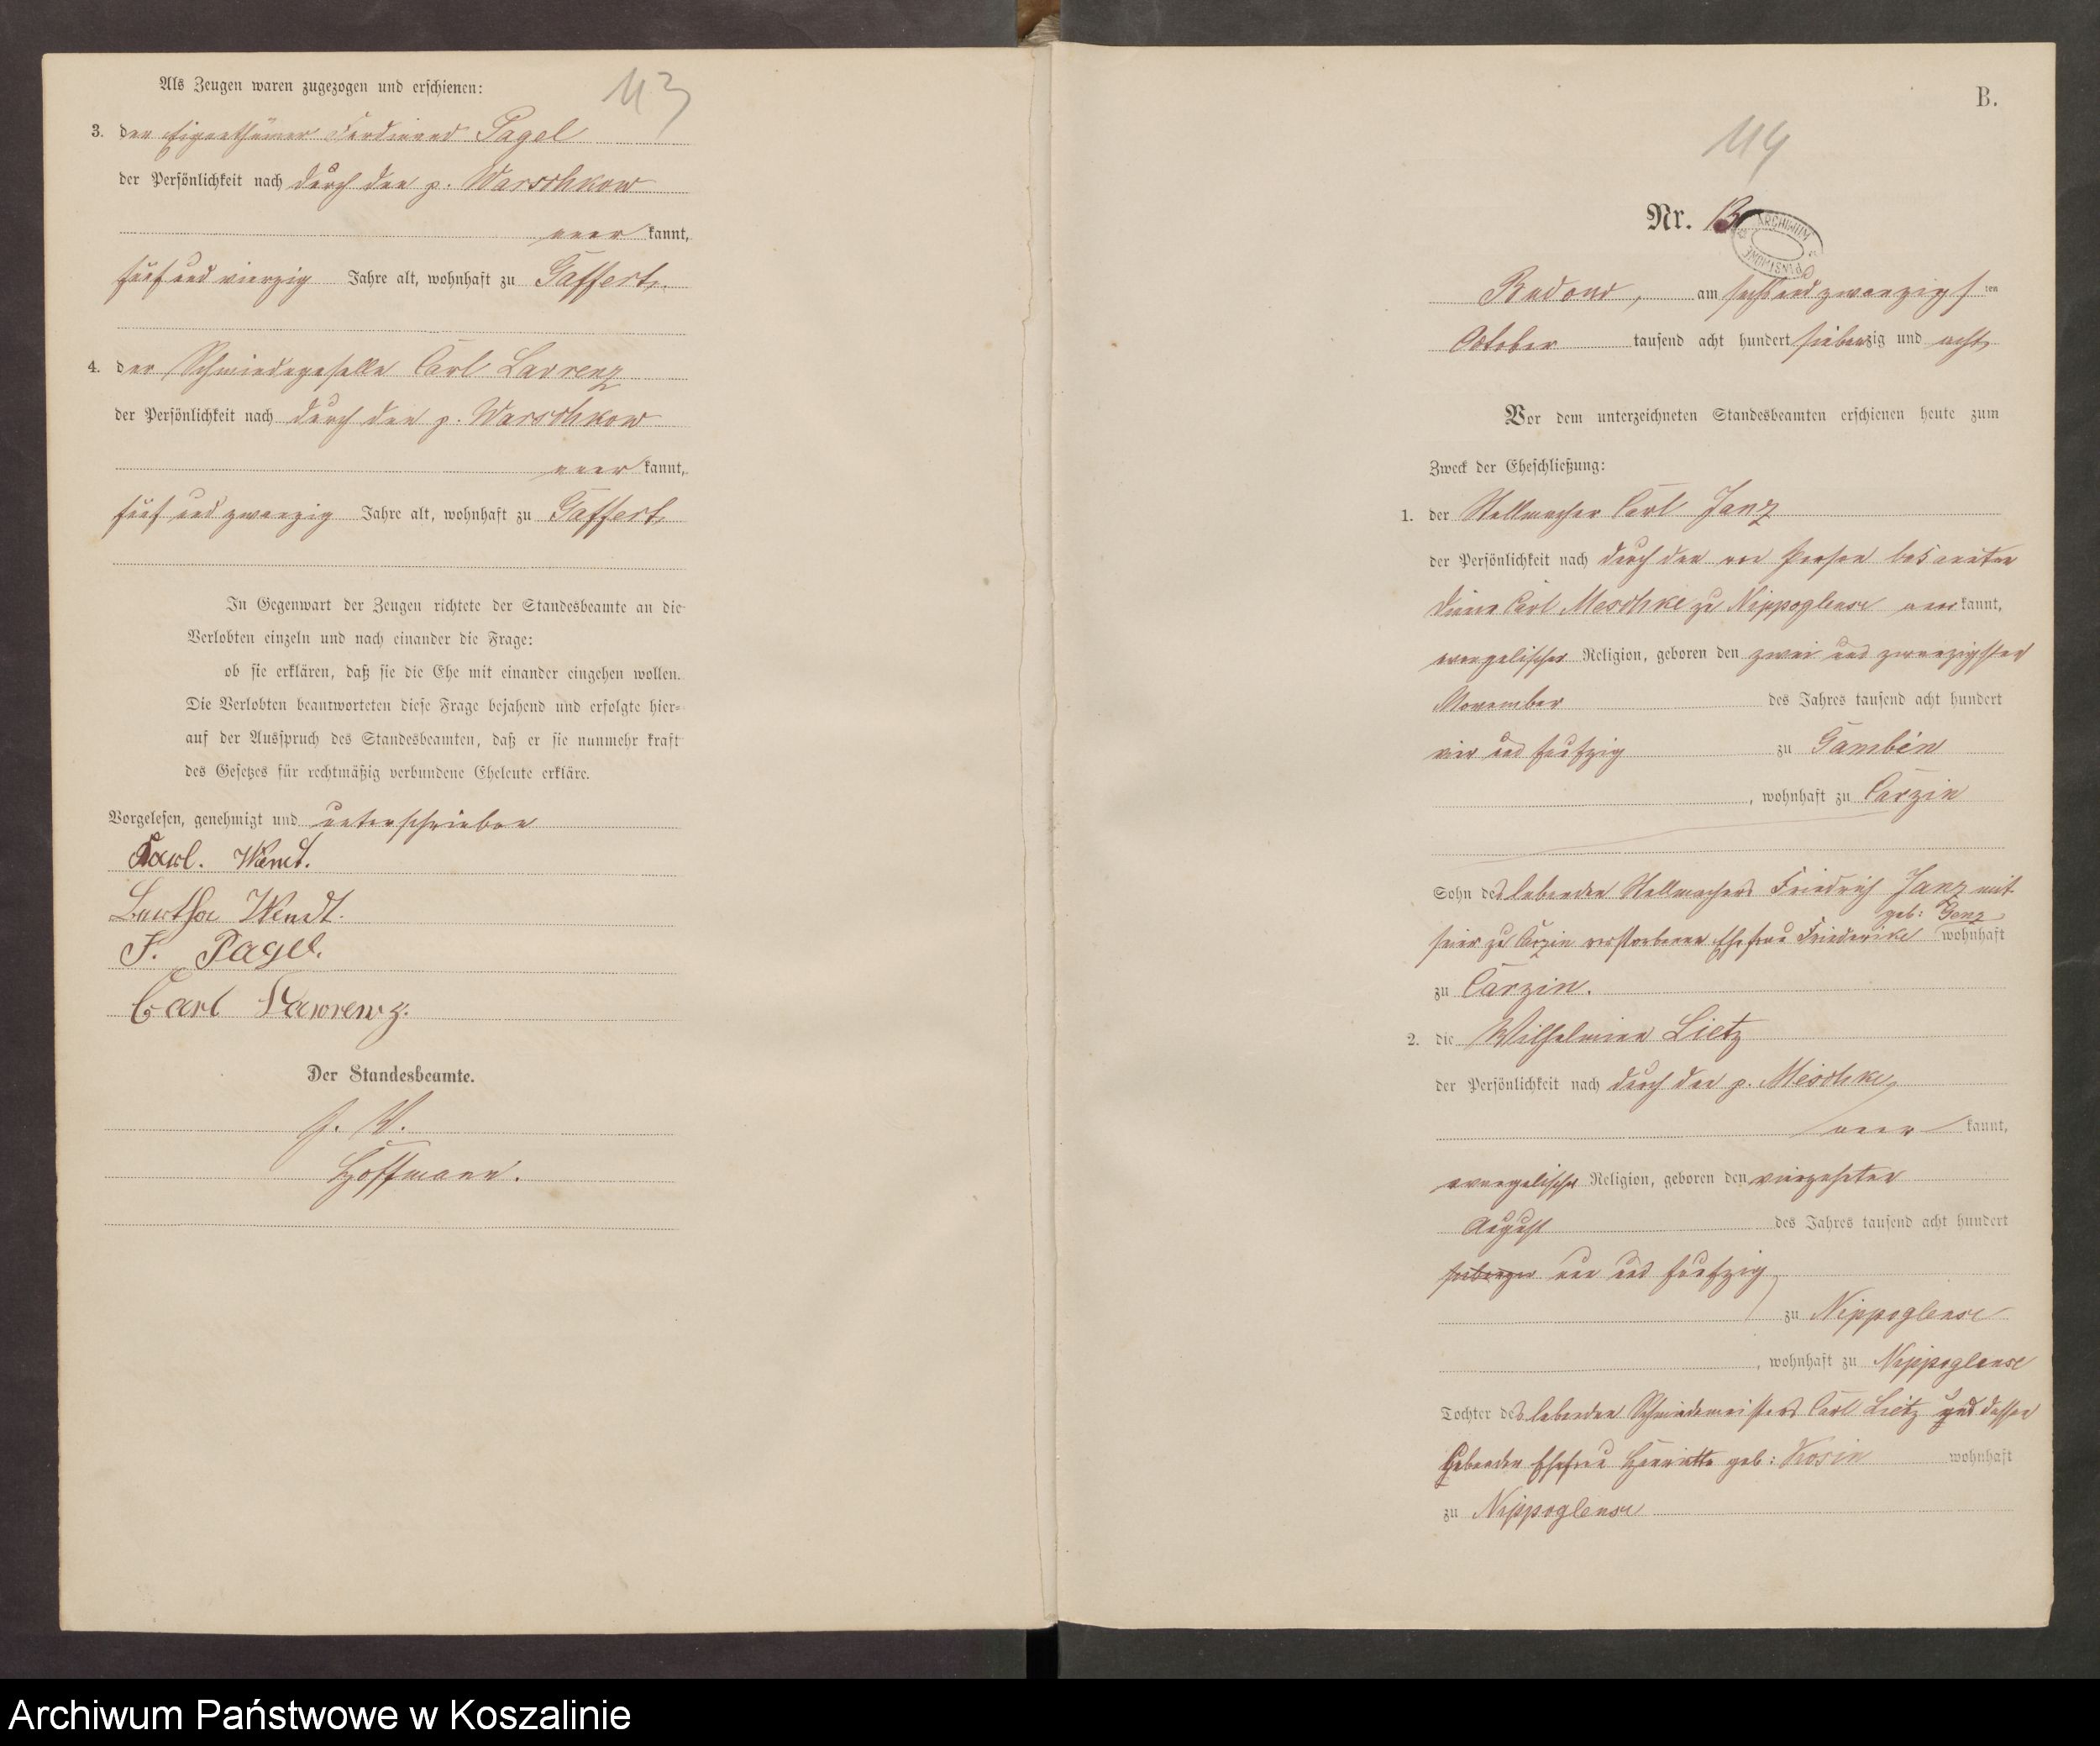 113
Als Zeugen waren zugezogen und erschienen:
3. den Eigenthümer Ferdinand Pagel
der Persönlichkeit nach durch den p. Warschkow
aner kannt,
fünf und vierzig Jahre alt, wohnhaft zu Gaffert
4. der Schmiedegeselle Carl Lavrenz
der Persönlichkeit nach durch den p. Warschkow
aner kannt,
fünf und zwanzig Jahre alt, wohnhaft zu Gaffert
In Gegenwart der Zeugen richtete der Standesbeamte an die
Verlobten einzeln und nach einander die Frage:
ob sie erklären, daß sie die Ehe mit einander eingehen wollen.
Die Verlobten beantworteten diese Frage bejahend und erfolgte hier-
auf der Ausspruch des Standesbeamten, daß er sie nunmehr kraft
des Gesetzes für rechtmäßig verbundene Eheleute erkläre.
Vorgelesen, genehmigt und unterschrieben
Karl. Wendt.
Bertha Wendt.
F. Pagel.
Carl Lawrenz.
Der Standesbeamte.
J. V.
Hoffmann.
B.
114
Nr. 13
ARCHIWUM
Budow, am sechs und zwanzigs ten
October tausend acht hundert siebenzig und acht
Vor dem unterzeichneten Standesbeamten erschienen heute zum
Zweck der Eheschließung:
1. der Stellmacher Carl Janz
der Persönlichkeit nach durch den von Person bekannten
Carl Meschke zu Nippoglense aner kannt,
evangelischer Religion, geboren den zwei und zwanzigsten
November des Jahres tausend acht hundert
vier und fünfzig zu Gambin
, wohnhaft zu Carzin
Sohn des lebenden Stellmachers Friedrich Janz mit
geb: Genz
seiner zu Carzin verstorbenen Ehefrau Friederike wohnhaft
zu Carzin.
2. die Wilhelmine Lietz
der Persönlichkeit nach durch den p. Meschke
aner kannt,
evangelischer Religion, geboren den vierzehnten
August des Jahres tausend acht hundert
und fünfzig
zu Nippoglense
, wohnhaft zu Nippoglense
Tochter des lebenden Schmiedemeisters Carl Lietz und dessen
lebenden Ehefrau Henriette geb: Kosin wohnhaft
zu Nippoglense
Archiwum Państwowe w Koszalinie